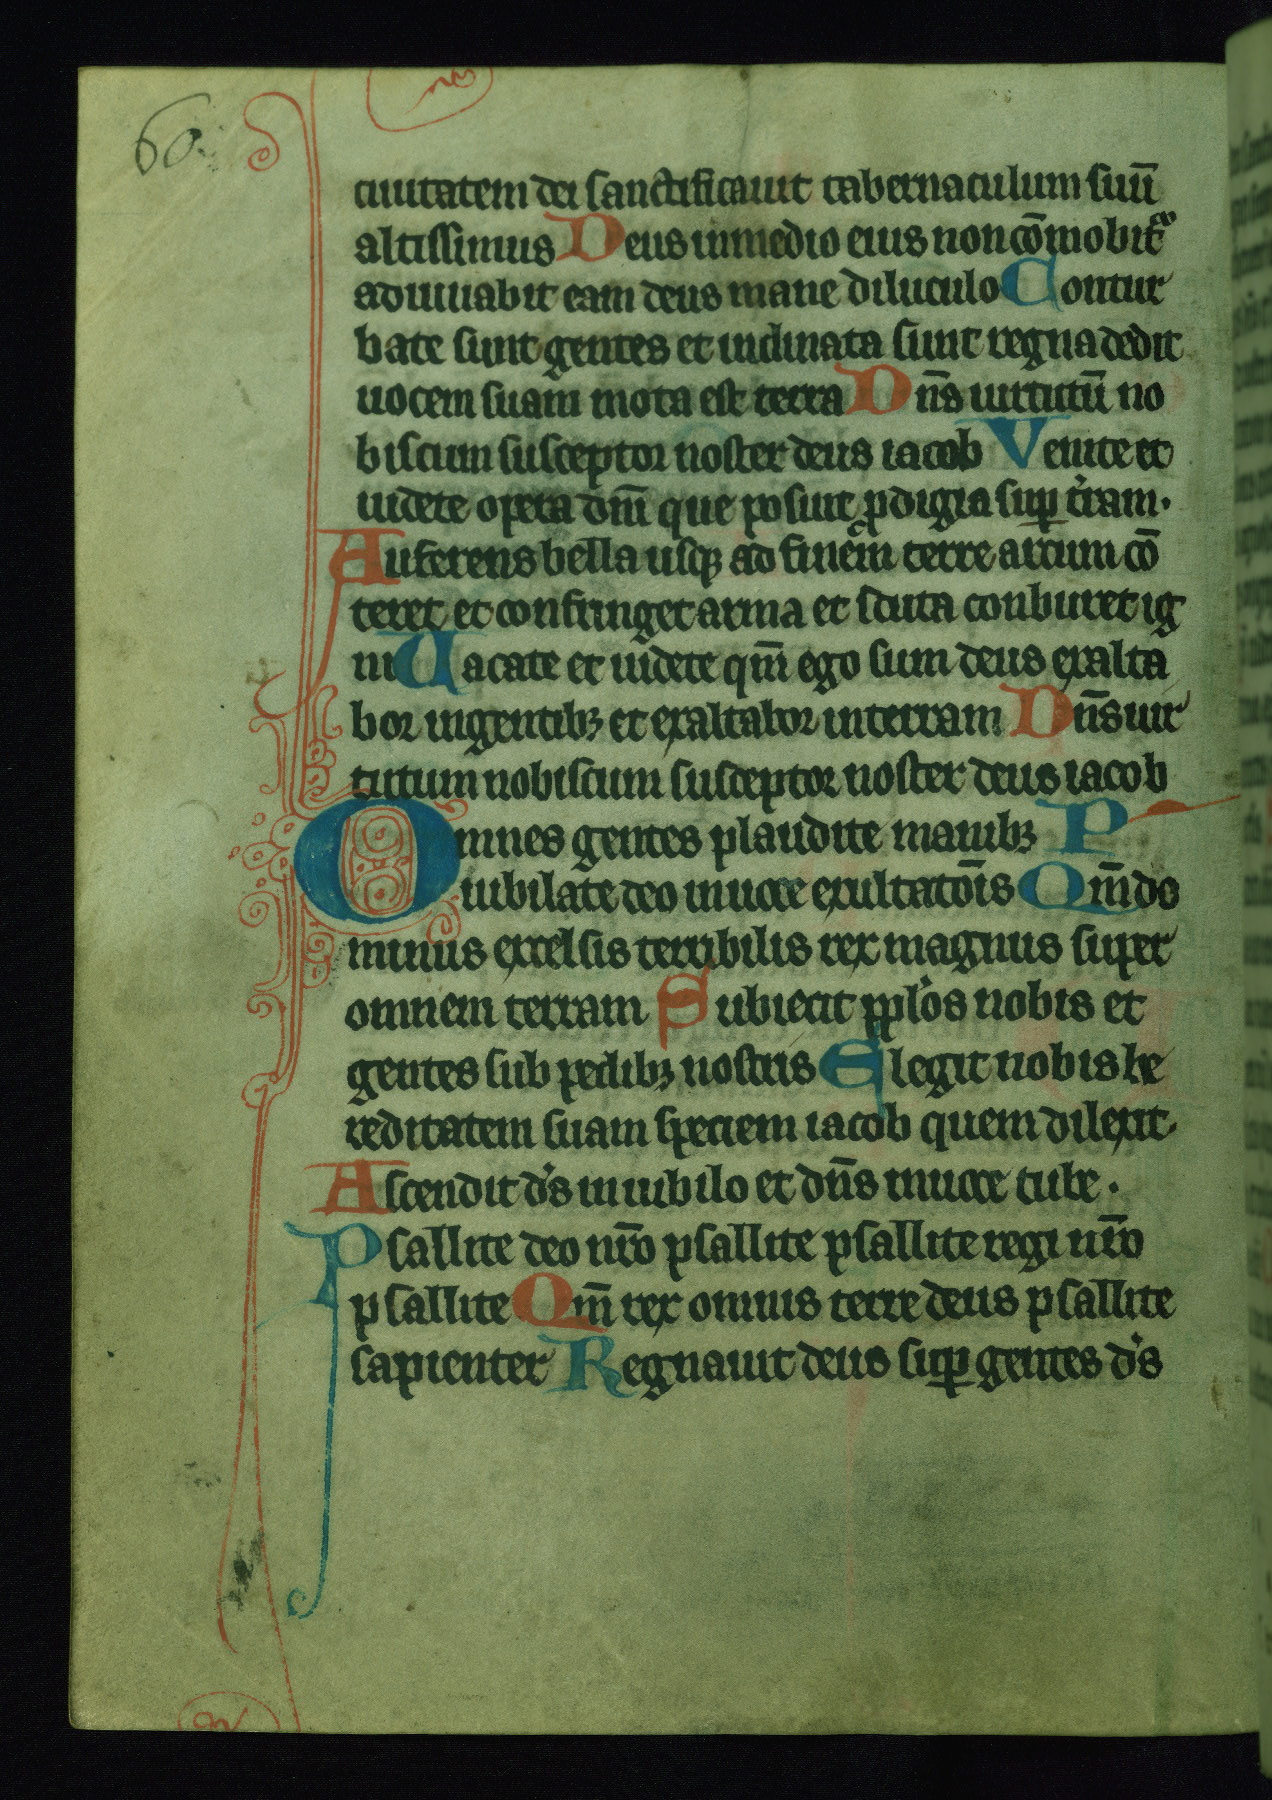 60.
ciuitatem dei sanctificauit tabernaculum suū
altissimus Deus in medio eius non cōmobit᷑
adiuuabit eam deus mane diluculo Contur
bate sunt gentes et inclinata sunt regna dedit
uocem suam mota est terra Dn̄s uirtutū no
biscum susceptor noster deus iacob Venite et
uidete opera dn̄i que posuit ꝓdigia suꝑ t̓ram.
Auferens bella usqꝫ ad finem terre arcum cō
teret et confringet arma et scuta conburet ig
ni Uacate et uidete qm̄ ego sum deus exalta
bor in gentibꝫ et exaltabor in terram Dn̄s uir
tutum nobiscum susceptor noster deus iacob
Omnes gentes plaudite manibꝫ
iubilate deo in uoce exultatōis Qm̄ do
minus excelsis terribilis rex magnus super
omnem terram Subiecit pplos nobis et
gentes sub pedibꝫ nostris Elegit nobis he
reditatem suam speciem iacob quem dilexit.
Ascendit ds in iubilo et dn̄s in uoce tube.
Psallite deo nr̄o psallite psallite regi nr̄o
psallite Qm̄ rex omnis terre deus psallite
sapienter Regnauit deus suꝑ gentes ds